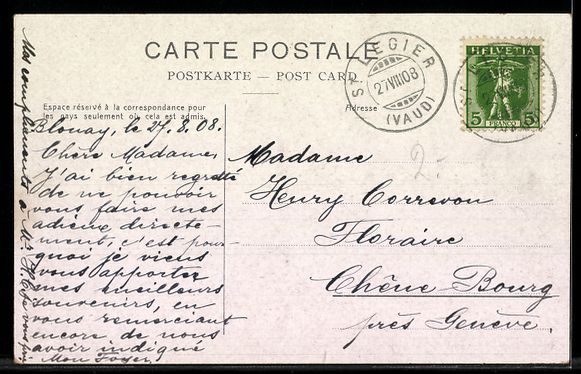 CARTE POSTALE
POSTKARTE — POST CARD
Espace réservé à la correspondance pour
les pays seulement où cela est admis.
Adresse
ST LÉGIER
27 VIII 08
(VAUD)
HELVETIA
5 FRANCO 5
Blonay, le 27.8.08.
Chère Madame,
J'ai bien regretté
de ne pouvoir
vous faire mes
adieux directe-
ment, c'est pour-
quoi je viens
vous apporter
mes meilleurs
souvenirs, en
vous remerciant
encore de nous
avoir indiqué
Mon Foyer.
Mes compliments à Mr H.
Madame
Henry Correvon
Floraire
Chêne Bourg
près Genève.
2.